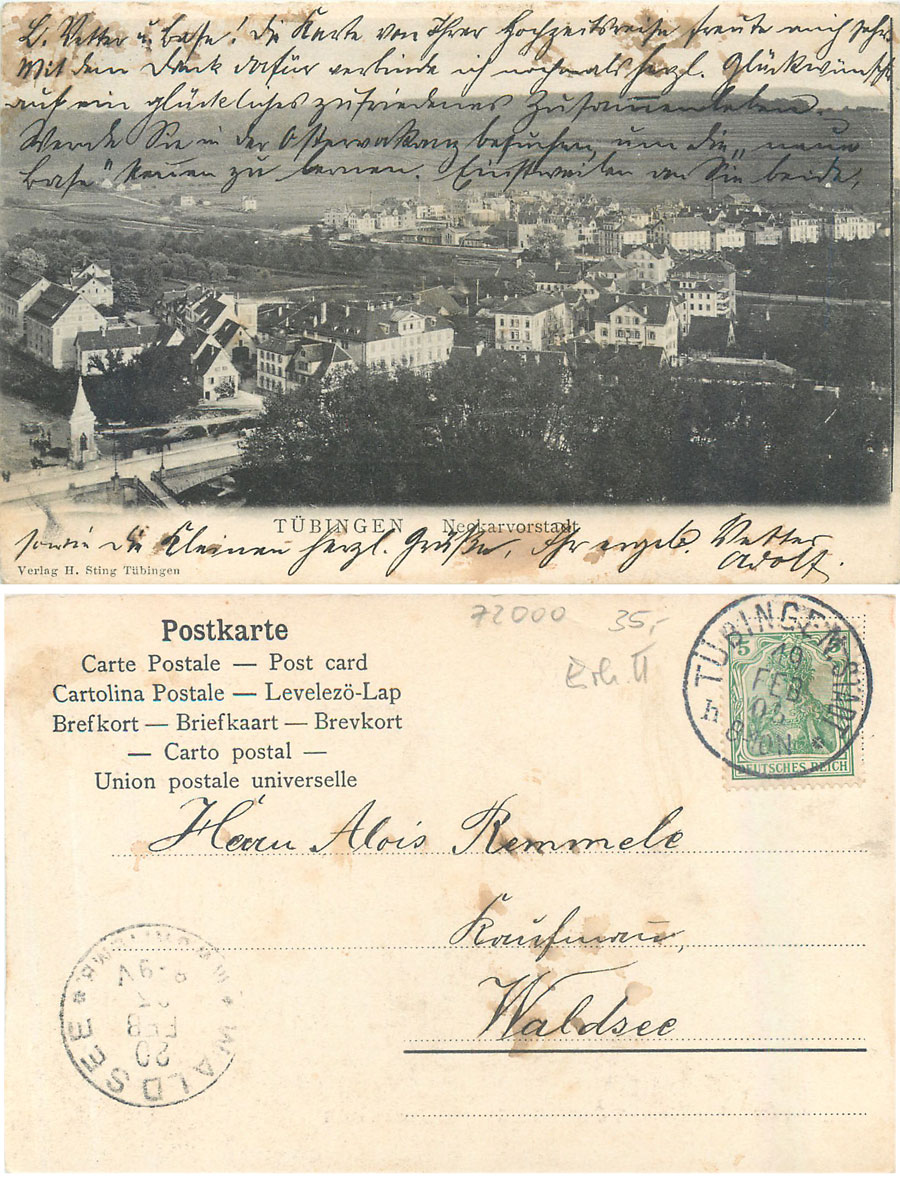 L. Vetter u. Base! Die Karte von Ihrer Hochzeitsreise freute mich sehr.
Mit dem Dank dafür verbinde ich nochmals herzl. Glückwünsche
auf ein glückliches zufriedenes Zusammenleben.
Werde Sie in der Ostervakanz besuchen, um die „neue
Base“ kennen zu lernen. Einstweilen an Sie beide,
TÜBINGEN Neckarvorstadt
sowie die Kleinen herzl. Grüße, Ihr ergeb. Vetter
Adolf.
Verlag H. Sting Tübingen
72000 35,-
Postkarte
Carte Postale — Post card
Cartolina Postale — Levelezö-Lap
Brefkort — Briefkaart — Brevkort
— Carto postal —
Union postale universelle
TÜBINGEN STADT
5 5
19
FEB
h
8-9 N. *
DEUTSCHES REICH
Herrn Alois Remmele
Kaufmann,
Waldsee
* WALDSEE *
FEB
20